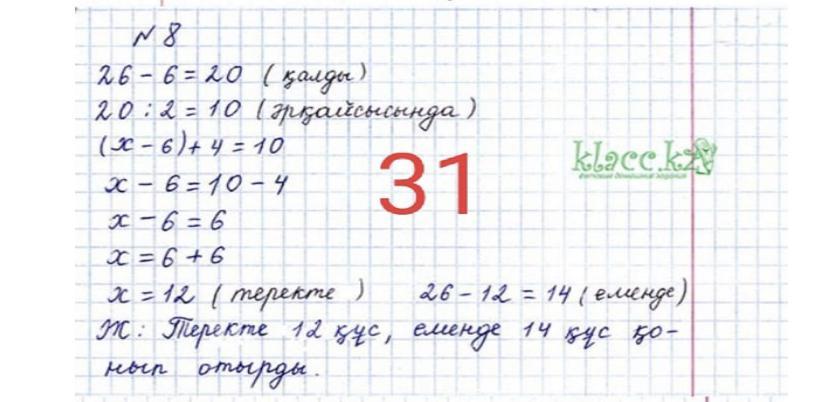 № 8
26 - 6 = 20 (қалды)
20 : 2 = 10 (әрқайсысында)
(x - 6) + 4 = 10
x - 6 = 10 - 4
x - 6 = 6
x = 6 + 6
x = 12 (теректе) 26 - 12 = 14 (еменде)
Ж: Теректе 12 құс, еменде 14 құс қо-
нып отырды.
31
klacc.kz